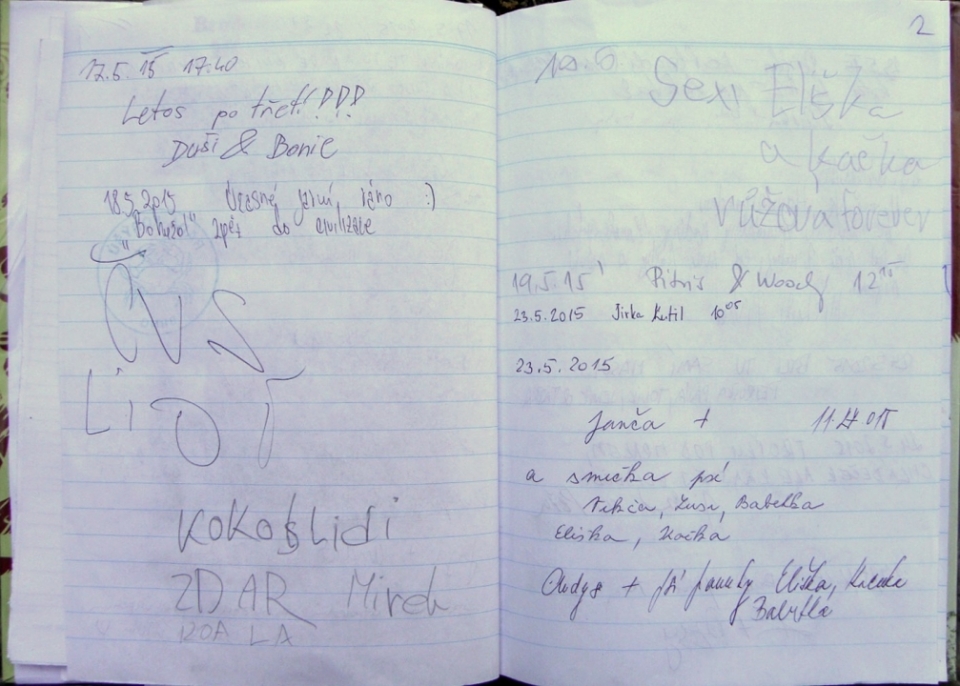 17.5.15 17.40
Letos po třetí!!!!
Duši & Bonie
18.5.2015 Úžasné jarní ráno :)
"Bohužel" zpět do civilizace
LiDT
KOKOSLidi
ZDAR Mirek
LA
2
19.6 Sexi Eliška
a kačka
růžová forever
19.5.15 & Woody 12 15
23.5.2015 Jirka Kutil 10 05
23.5.2015
Janča +
a smečka psí
Zusi, Babetka
Eliška, Kačka
Andys + Eliška,
Babetka